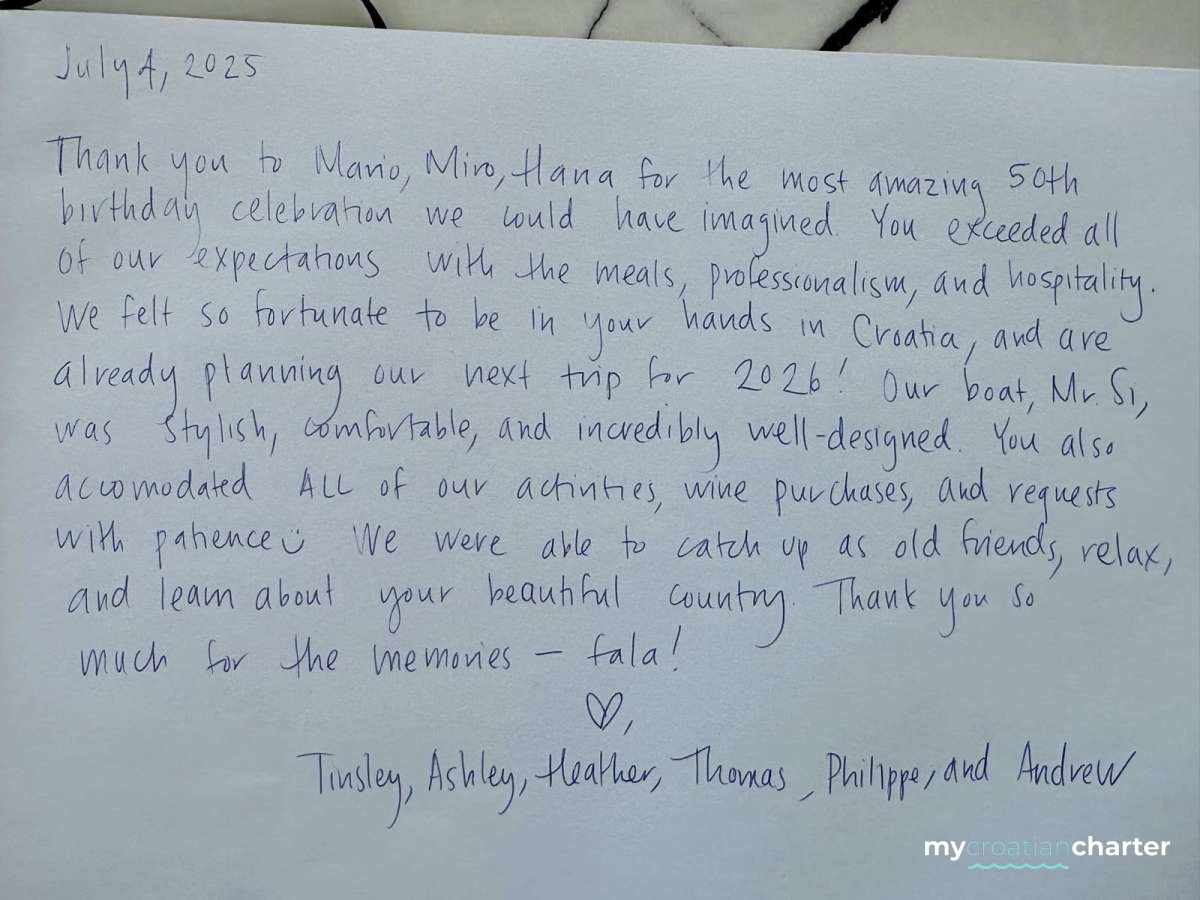 July 4, 2025
Thank you to Mario, Miro, Hana for the most amazing 50th
birthday celebration we could have imagined. You exceeded all
of our expectations with the meals, professionalism, and hospitality.
We felt so fortunate to be in your hands in Croatia, and are
already planning our next trip for 2026! Our boat, Mr. Si,
was stylish, comfortable, and incredibly well-designed. You also
accomodated ALL of our activities, wine purchases, and requests
with patience ☺ We were able to catch up as old friends, relax,
and learn about your beautiful country. Thank you so
much for the memories – fala!
♡,
Tinsley, Ashley, Heather, Thomas, Philippe, and Andrew
mycroatiancharter